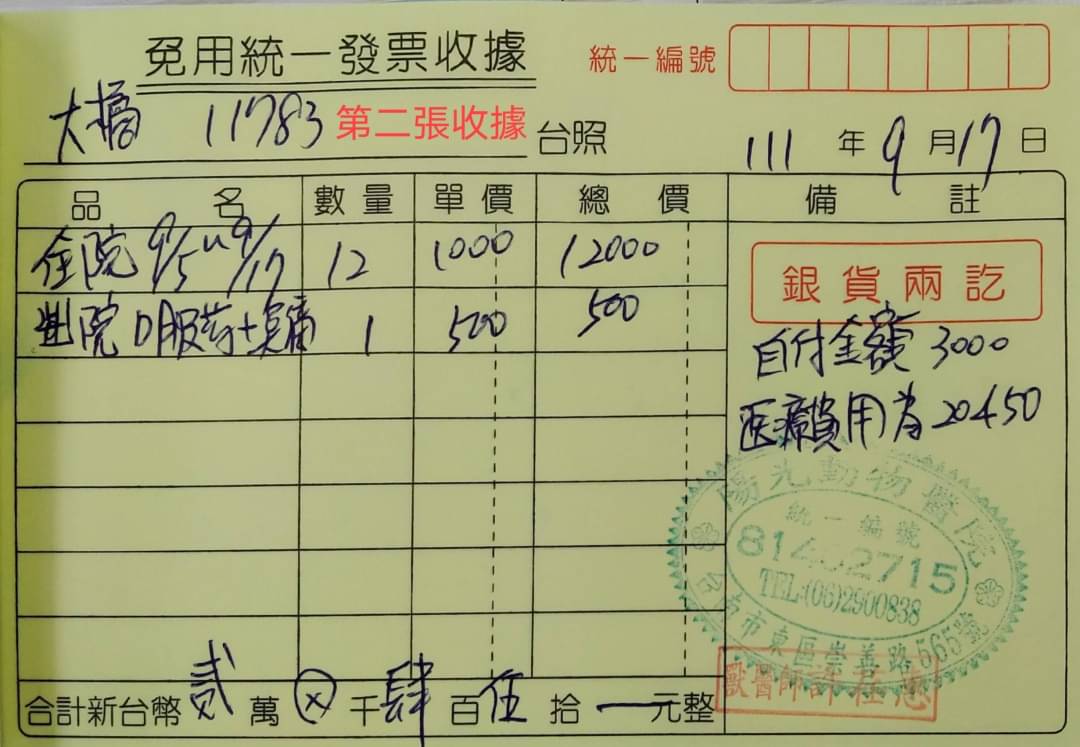 免用統一發票收據
統一編號
大橘 11783 第二張收據 台照
111 年 9 月 17 日
品名 數量 單價 總價 備註
住院 9/5~9/17 12 1000 12000
出院口服药+美膚 1 500 500
銀貨兩訖
自付金額 3000
医療費用為 20450
陽光動物醫院
統一編號
2715
TEL:(06)2900838
台南市東區崇善路565號
獸醫師許
合計新台幣 貳 萬 ⓧ 千 肆 百 伍 拾 一 元整